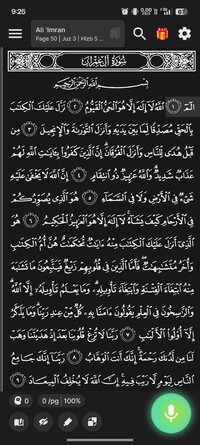 9:25
Ali 'Imran
Page 50 | Juz 3 | Hizb 5
سُورَةُ آلِ عِمْرَانَ
بِسْمِ اللَّهِ الرَّحْمَٰنِ الرَّحِيمِ
الٓمٓ ١ اللَّهُ لَا إِلَٰهَ إِلَّا هُوَ الْحَيُّ الْقَيُّومُ ٢ نَزَّلَ عَلَيْكَ الْكِتَٰبَ
بِالْحَقِّ مُصَدِّقًا لِّمَا بَيْنَ يَدَيْهِ وَأَنزَلَ التَّوْرَىٰةَ وَالْإِنجِيلَ ٣ مِن
قَبْلُ هُدًى لِّلنَّاسِ وَأَنزَلَ الْفُرْقَانَ إِنَّ الَّذِينَ كَفَرُوا بِـَٔايَٰتِ اللَّهِ لَهُمْ
عَذَابٌ شَدِيدٌ وَاللَّهُ عَزِيزٌ ذُو انتِقَامٍ ٤ إِنَّ اللَّهَ لَا يَخْفَىٰ عَلَيْهِ
شَىْءٌ فِى الْأَرْضِ وَلَا فِى السَّمَآءِ ٥ هُوَ الَّذِى يُصَوِّرُكُمْ
فِى الْأَرْحَامِ كَيْفَ يَشَآءُ لَا إِلَٰهَ إِلَّا هُوَ الْعَزِيزُ الْحَكِيمُ ٦ هُوَ
الَّذِى أَنزَلَ عَلَيْكَ الْكِتَٰبَ مِنْهُ ءَايَٰتٌ مُّحْكَمَٰتٌ هُنَّ أُمُّ الْكِتَٰبِ
وَأُخَرُ مُتَشَٰبِهَٰتٌ فَأَمَّا الَّذِينَ فِى قُلُوبِهِمْ زَيْغٌ فَيَتَّبِعُونَ مَا تَشَٰبَهَ
مِنْهُ ابْتِغَآءَ الْفِتْنَةِ وَابْتِغَآءَ تَأْوِيلِهِ وَمَا يَعْلَمُ تَأْوِيلَهُ إِلَّا اللَّهُ
وَالرَّٰسِخُونَ فِى الْعِلْمِ يَقُولُونَ ءَامَنَّا بِهِ كُلٌّ مِّنْ عِندِ رَبِّنَا وَمَا يَذَّكَّرُ
إِلَّا أُولُوا الْأَلْبَٰبِ ٧ رَبَّنَا لَا تُزِغْ قُلُوبَنَا بَعْدَ إِذْ هَدَيْتَنَا وَهَبْ
لَنَا مِن لَّدُنكَ رَحْمَةً إِنَّكَ أَنتَ الْوَهَّابُ ٨ رَبَّنَا إِنَّكَ جَامِعُ
النَّاسِ لِيَوْمٍ لَّا رَيْبَ فِيهِ إِنَّ اللَّهَ لَا يُخْلِفُ الْمِيعَادَ ٩
0 0 /pg 100%